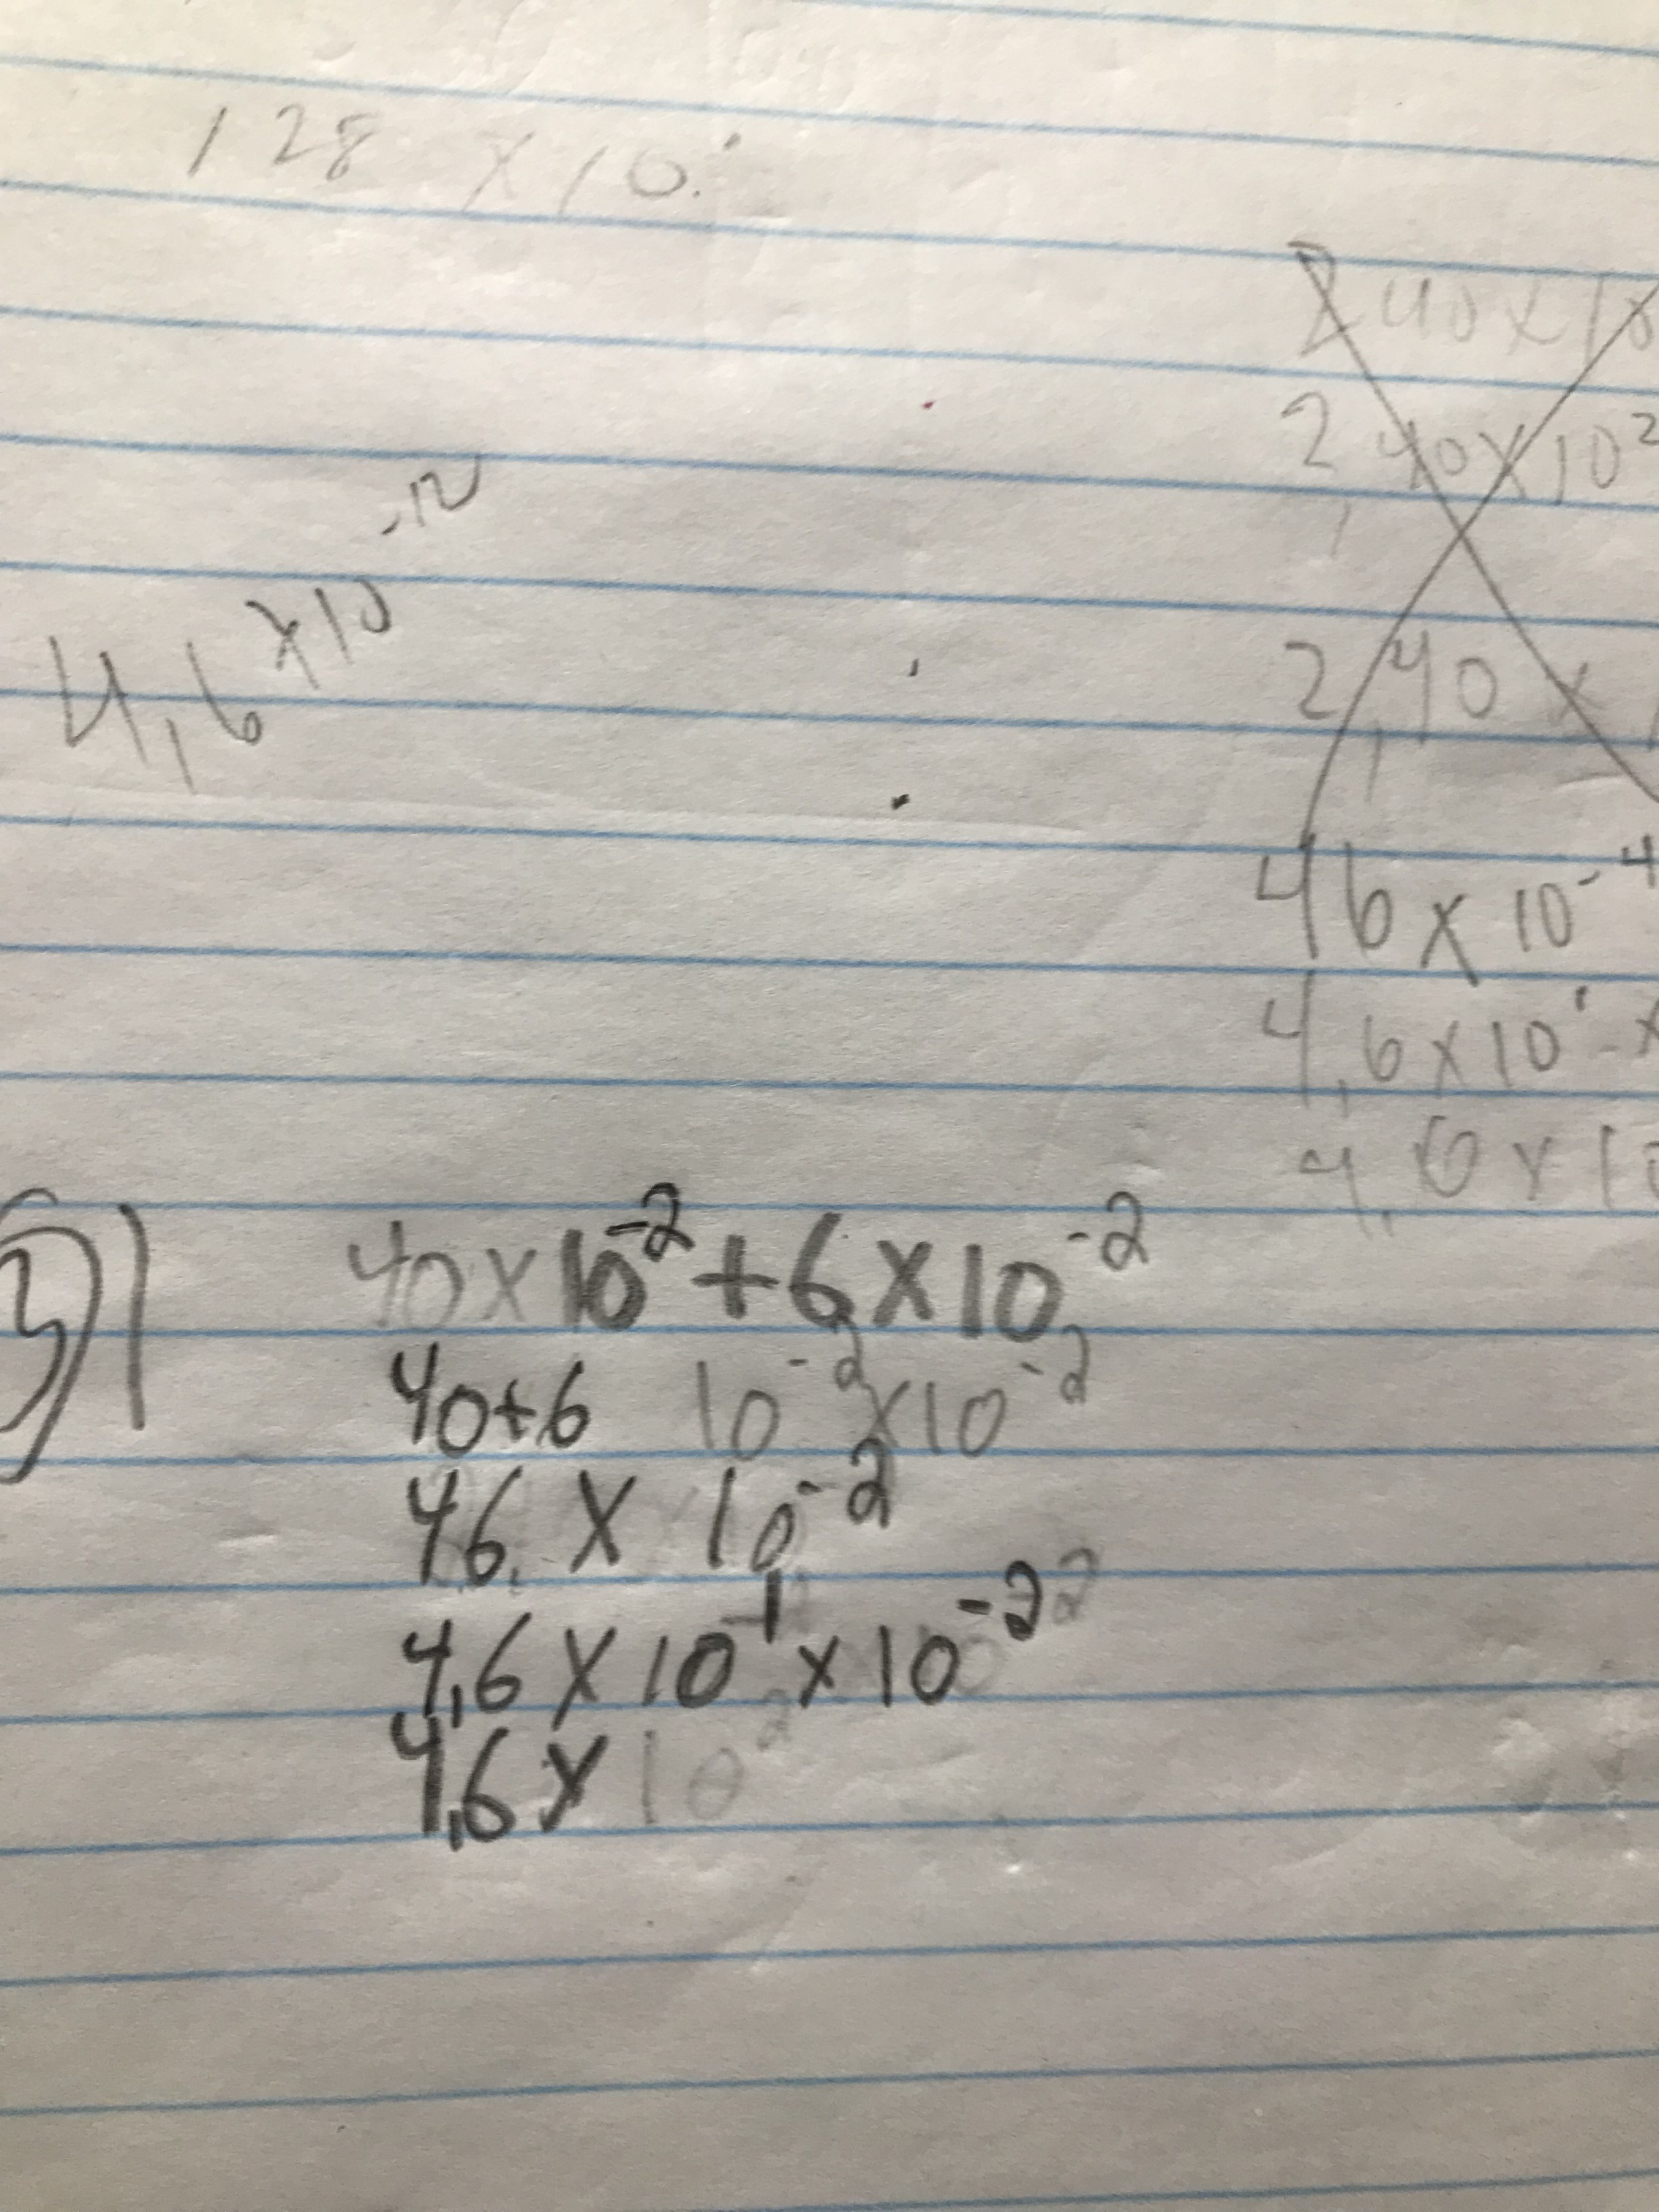 128 x 10
4,6 x 10⁻¹²
2 40 x 10
2 40 x 10²
2,40 x
46 x 10⁻⁴
4,6 x 10¹ x
4,6 x 10
40 x 10⁻² + 6 x 10⁻²
40+6 10⁻² x 10⁻²
46 x 10⁻²
4,6 x 10¹ x 10⁻²
4,6 x 10²